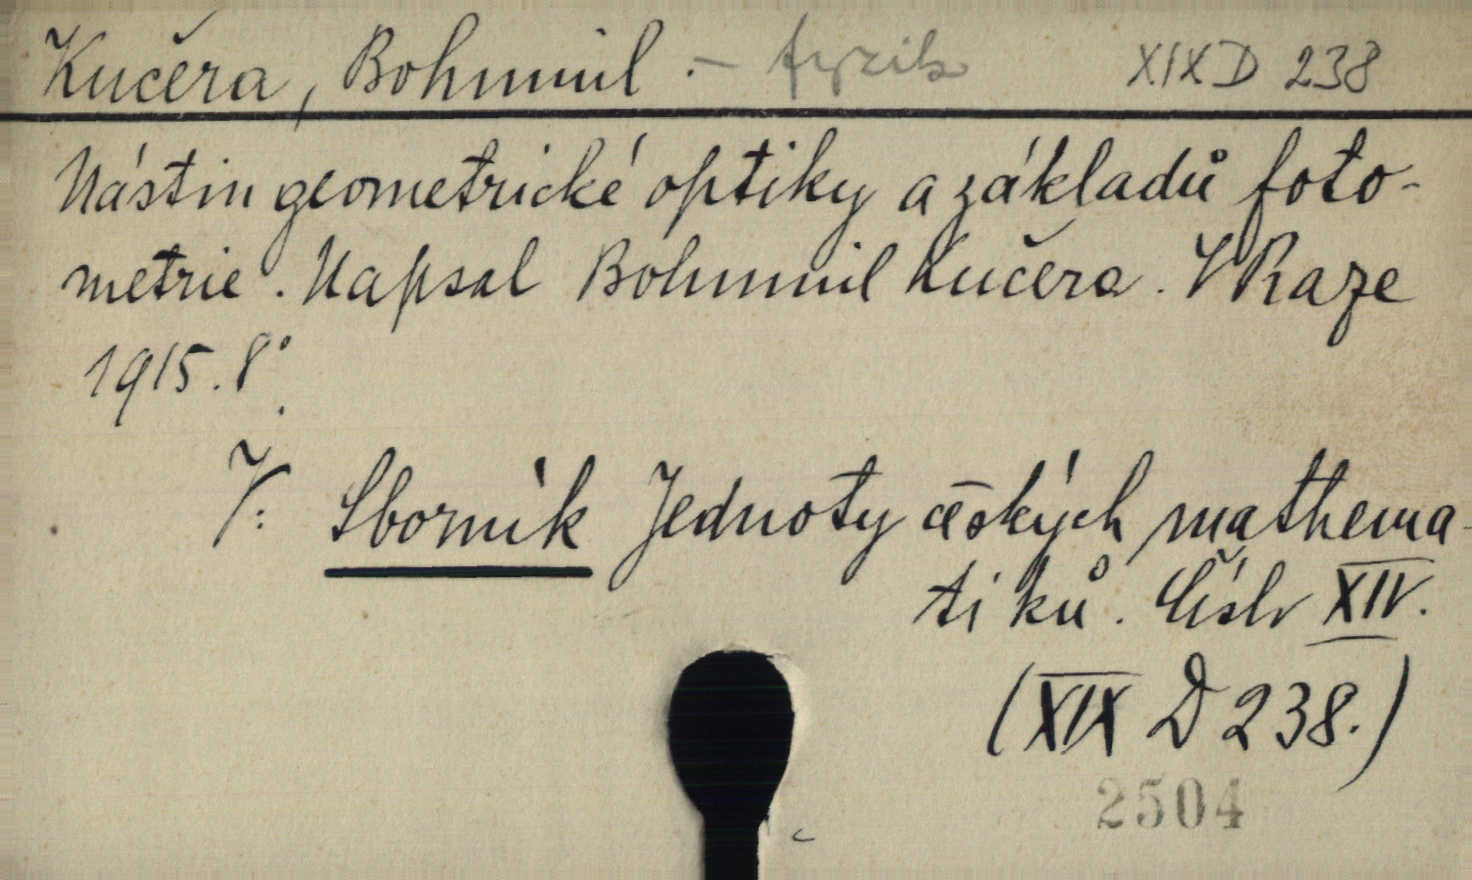 Kučera, Bohumil. – fyzik XIX D 238
Nástin geometrické optiky a základů foto-
metrie. Napsal Bohumil Kučera. V Praze
1915. 8°.
V: Sborník Jednoty českých mathema-
tiků. Číslo XIV.
(XIX D 238.)
2504